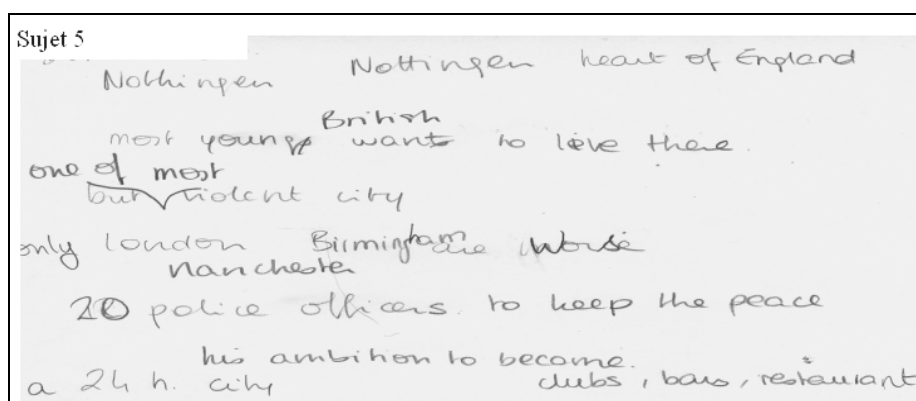 Sujet 5
Nottingen Nottingen heart of England
British
most young want to live there.
one of most
but violent city
only london Birmingham are worse
Manchester
20 police officers to keep the peace
his ambition to become.
a 24 h. city clubs, bars, restaurant